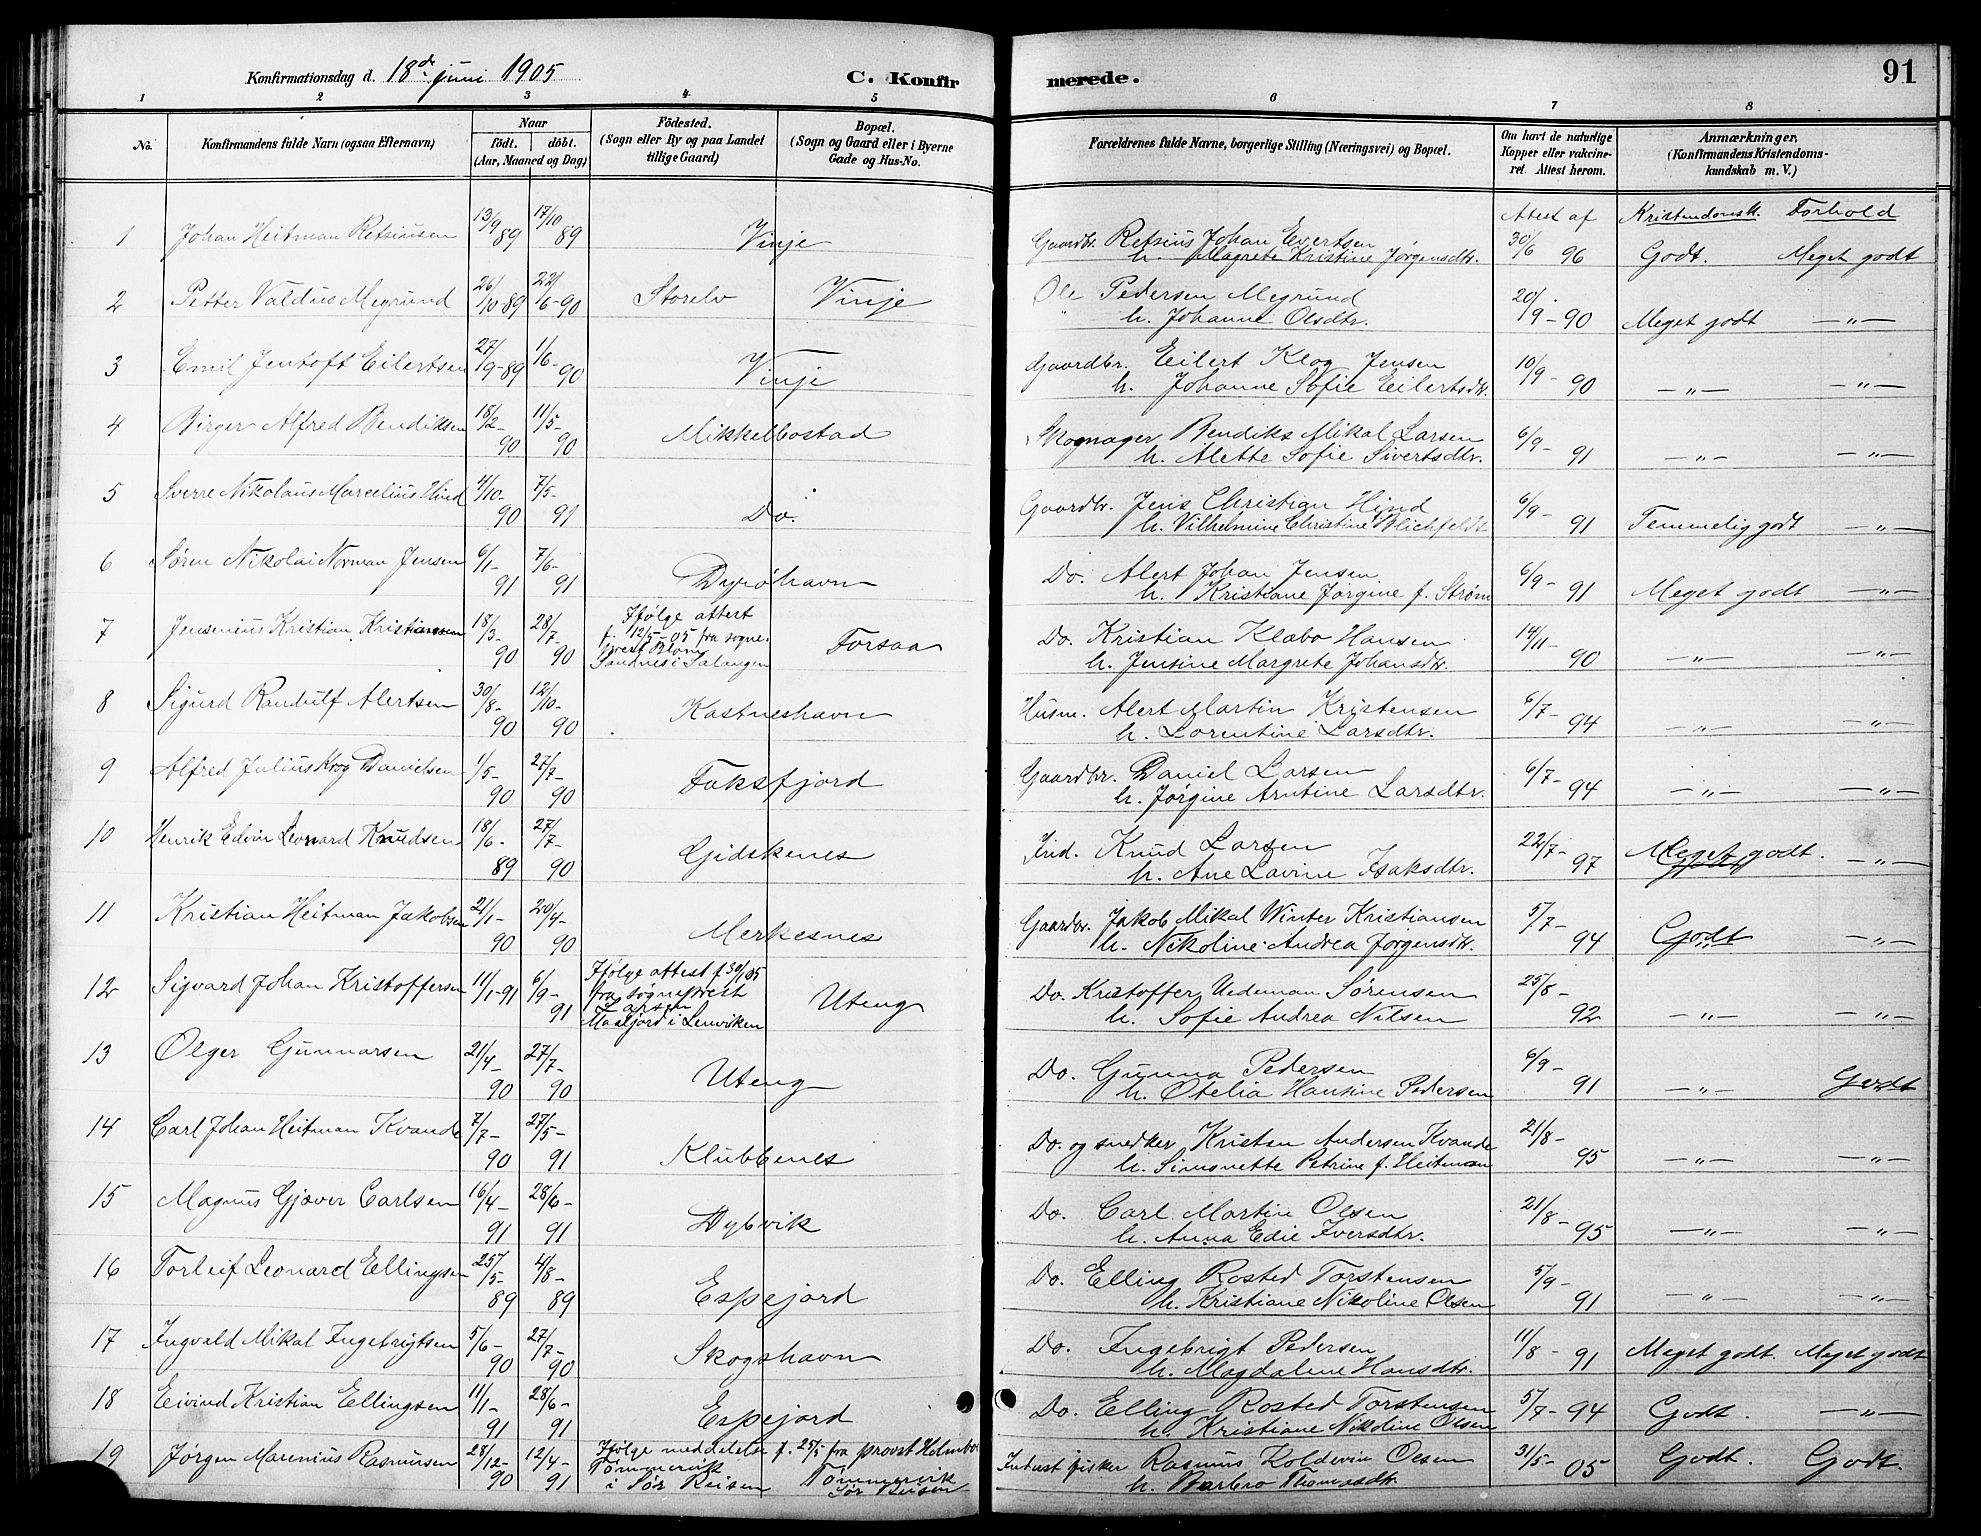 Konfirmationsdag d. 18de juni 1905
C. Konfirmerede.
91
1 2 3 4 5 6 7 8
No.
Konfirmandens fulde Navn (ogsaa Efternavn)
Naar
født. døbt.
(Aar, Maaned og Dag)
Fødested.
(Sogn eller By og paa Landet
tillige Gaard)
Bopæl.
(Sogn og Gaard eller i Byerne
Gade og Hus-No.
Forældrenes fulde Navne, borgerlige Stilling (Næringsvei) og Bopæl.
Om havt de naturlige
Kopper eller vakcine-
ret. Attest herom.
Anmærkninger.
(Konfirmandens Kristendoms-
kundskab m. V.)
Attest af Kristendomsk. Forhold
1 Johan Heitman Retsiusen 13/9 89 17/10 89 Vinje Gaardbr. Retsius Johan Evertsen
h. Magrete Kristine Jørgensdtr. 30/6 96 Godt. Meget godt
2 Petter Valdus Megrund 26/10-89 22/6-90 Storelv Vinje Ole Pedersen Megrund
" h. Johanne Olsdtr. 20/9-90 Meget godt —"—
3 Emil Jentoft Eilertsen 27/9-89 1/6-90 Vinje Gaardbr. Eilert Klog Jensen
h. Johanne Sofie Eilertsdtr. 10/9-90 —"— —"—
4 Birger Alfred Bendiksen 18/2-90 11/5-90 Mikkelbostad Skognager Bendiks Mikal Larsen
h. Alette Sofie Sivertsdtr. 6/9-91 —"— —"—
5 Sverre Nikolaus Marcelius Hind 4/10-90 7/5-91 Do. Gaardbr. Jens Christian Hind
h. Vilhelmine Christine Blichfeldt 6/9-91 Temmelig godt —"—
6 Søren Nikolai Norman Jensen 6/1-91 7/6-91 Dyrøhavn Do. Alert Johan Jensen
h. Kristiane Jørgine f. Strøm 6/9-91 Meget godt —"—
7 Jensenius Kristian Kristiansen 18/3-90 28/7-90 Ifølge attest
f. 12/5-05 fra sogne-
prest Blom
Sandnes i Salangen Forsaa Do. Kristian Klæbo Hansen
h. Jensine Margrete Johansdtr. 14/11-90 —"— —"—
8 Sigurd Randulf Alertsen 30/8-90 12/10-90 Kastneshavn Husm. Alert Martin Kristensen
h. Lorentine Larsdtr. 6/7-94 —"— —"—
9 Alfred Julius Krog Danielsen 1/5-90 27/7-90 Faksfjord Gaardbr. Daniel Larsen
h. Jørgine Arntine Larsdtr. 6/7-94 —"— —"—
10 Henrik Edvin Leonard Knudsen 18/6-89 27/7-90 Gidskenes Ind. Knud Larsen
h. Ane Lavine Isaksdtr. 22/7-97 Meget godt. —"—
11 Kristian Heitman Jakobsen 21/1-90 20/4-90 Merkesnes Gaardbr. Jakob Mikal Winter Kristiansen
h. Nikoline Andrea Jørgensdtr. 5/7-94 Godt —"—
12 Sigvard Johan Kristoffersen 11/1-91 6/9-91 Ifølge attest f 30/1 05
fra sogneprest
Larsen
Maalfjord i Lenviken Uteng Do. Kristoffer Uedeman Sørensen
h. Sofie Andrea Nilsen 25/8-92 —"— —"—
13 Olger Gunnarsen 21/4-90 27/7-90 Uteng Do. Gunna Pedersen
h. Otelia Hansine Pedersen 6/9-91 —"— Godt
14 Carl Johan Heitman Kvande 7/7-90 27/5-91 Klubbenes Do. og snedker Kristen Andersen Kvande
h. Simonette Petrine f. Heitman 21/8-95 —"— —"—
15 Magnus Gjæver Carlsen 16/4-91 28/6-91 Dybvik Do. Carl Martin Olsen
h. Anna Edie Iversdtr. 21/8-95 —"— —"—
16 Torleif Leonard Ellingsen 25/5-89 4/8-89 Espejord Do. Elling Rosted Torstensen
h. Kristiane Nikoline Olsen 5/9-91 —"— —"—
17 Ingvald Mikal Ingebrigtsen 5/6-90 27/7-90 Skogshavn Do. Ingebrigt Pedersen
h. Magdalene Hansdtr. 11/8-91 Meget godt. Meget godt
18 Eivind Kristian Ellingsen 11/1-91 28/6-91 Espejord Do. Elling Rosted Torstensen
h. Kristiane Nikoline Olsen 5/7-94 Godt. —"—
19 Jørgen Marenius Rasmussen 28/12-90 12/4-91 Ifølge meddelelse f. 25/5 fra provst Holmboe
Tømmervik
i Sør Reisen Tømmervik
Sør Reisen Inderst fisker Rasmus Koldevin Olsen
h. Barbro Thomasdtr. 31/5-05 Godt. Godt.